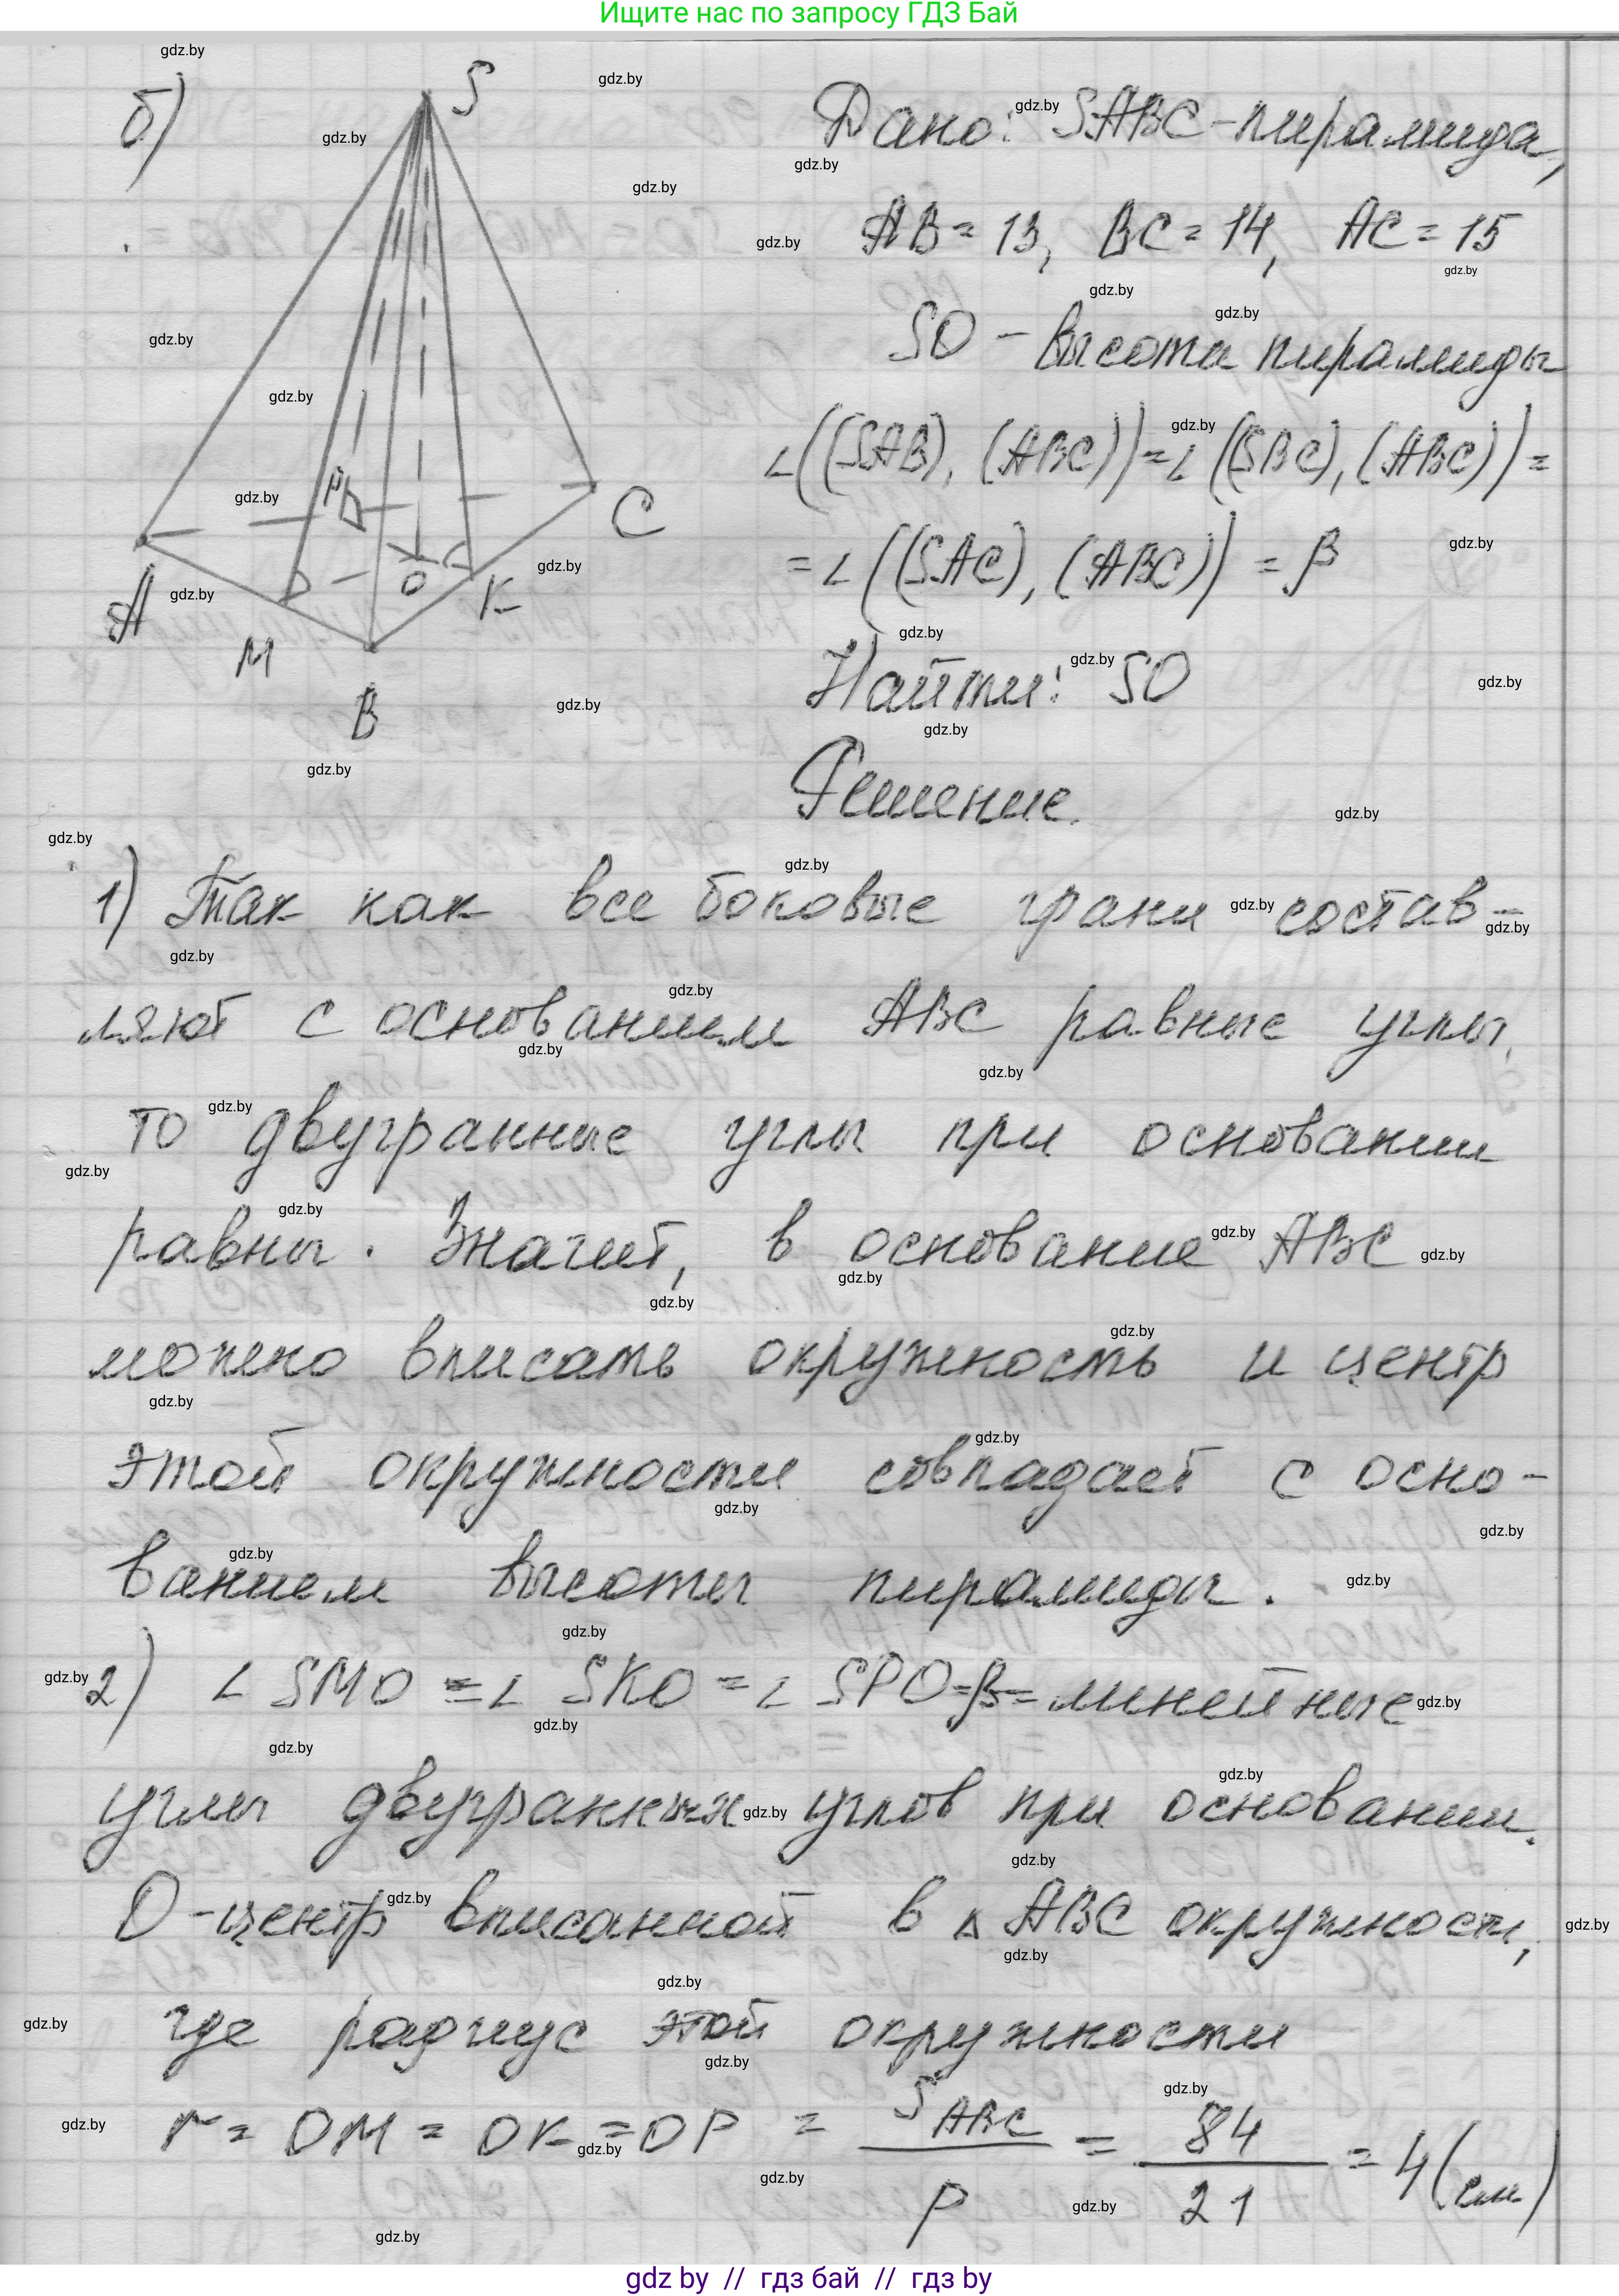 Ищите нас по запросу ГДЗ Бай
б)
S
A
M
B
K
C
O
P
Дано: SABC-пирамида,
AB = 13, BC = 14, AC = 15
SO - высота пирамиды
∠((SAB), (ABC)) = ∠((SBC), (ABC)) =
= ∠((SAC), (ABC)) = β
Найти: SO
Решение.
1) Так как все боковые грани состав-
ляют с основанием ABC равные углы,
то двугранные углы при основании
равны. Значит, в основание ABC
можно вписать окружность и центр
этой окружности совпадает с осно-
ванием высоты пирамиды.
2) ∠ SMO = ∠ SKO = ∠ SPO = β = линейные
углы двугранных углов при основании.
O-центр вписанной в △ ABC окружности,
где радиус этой окружности
r = OM = OK = OP = S ABC / p = 84 / 21 = 4 (см)
gdz by // гдз бай // гдз by